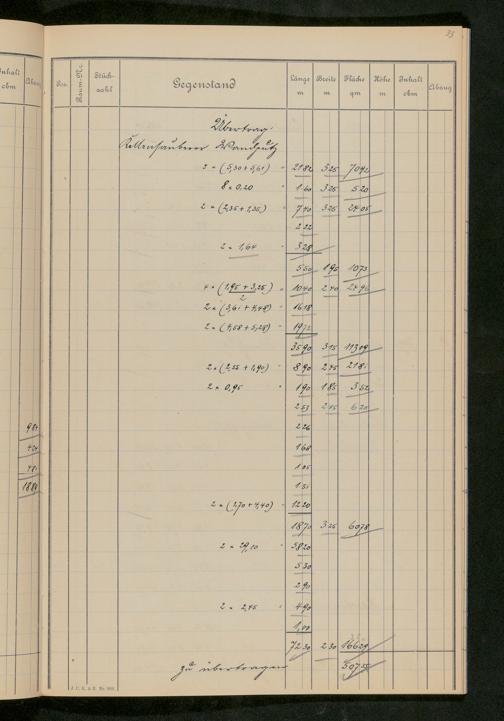 23
Inhalt
cbm
Abzug
Pos.
Raum-Nr.
Stück-
zahl
Gegenstand
Länge
m
Breite
m
Fläche
qm
Höhe
m
Inhalt
cbm
Abzug
Übertrag:
Kellensauberer Wandputz
2 × (5,30 + 5,61) = 2182 325 7092
8 × 0,20 = 160 325 520
2 × (2,35 + 1,35) = 740 325 2405
222
2 × 1,64 = 328
550 195 1073
4 × (1,95 + 3,25) = 1040 240 2496
2
2 × (3,61 + 4,48) = 1618
2 × (4,58 + 5,28) = 1972
3590 315 11309
2 × (2,55 + 1,90) = 890 245 2181
2 × 0,95 = 190 185 352
253 245 620
226
168
105
151
2 × (1,70 + 4,40) = 1220
1870 325 6078
2 × 29,10 = 5820
530
290
2 × 2,45 = 490
1,00
7230 230 16629
zu übertragen 50755